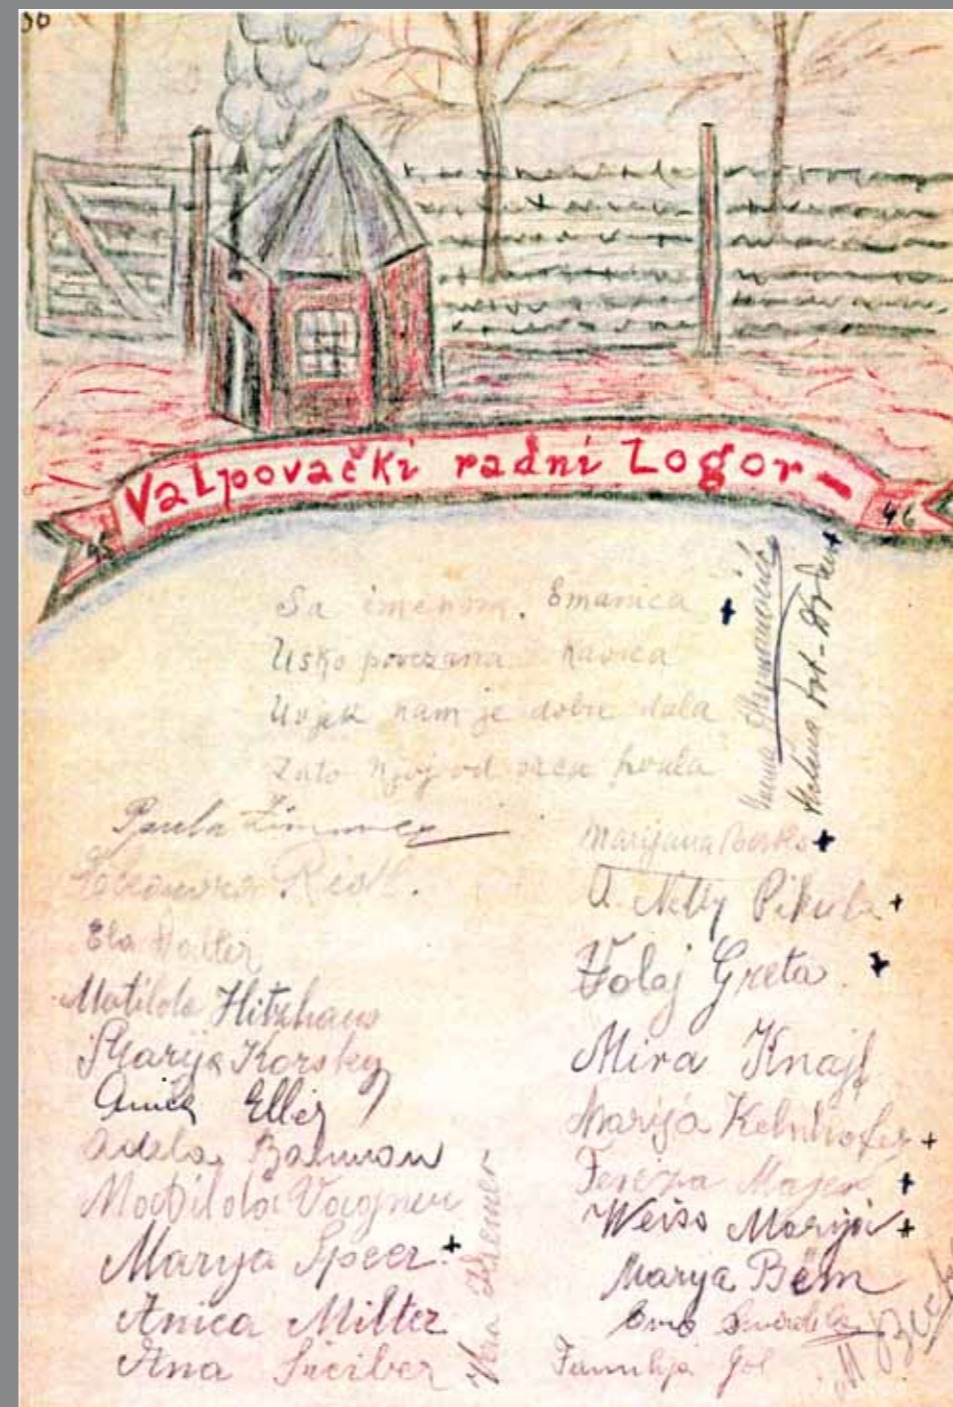 Valpovački radni Logor-
45
46
Sa imenom Emanica
Usko povezana kavica
Uvjek nam je dobru dala
Zato njoj od srca hvala
Paula
Riedl.
Ela
Matilda Hitzhaus
Marija Korsky
Anica Eller
Adela Bauman
Matilda Vagner
Marija Speer +
Anica Milter
Ana Šreiber
Vera Kremer
Marijana +
A. Nelly Pikula +
Folaj Greta +
Mira Knajf
Marija Kelnhofer +
Tereza Majer +
Weiss Marija +
Marija Bëm
Familija Gol